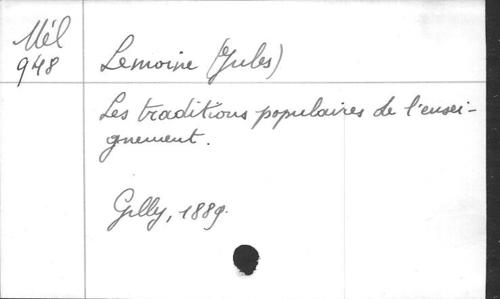 Mél
948
Lemoine (Jules)
Les traditions populaires de l'ensei-
gnement.
Gilly, 1889.